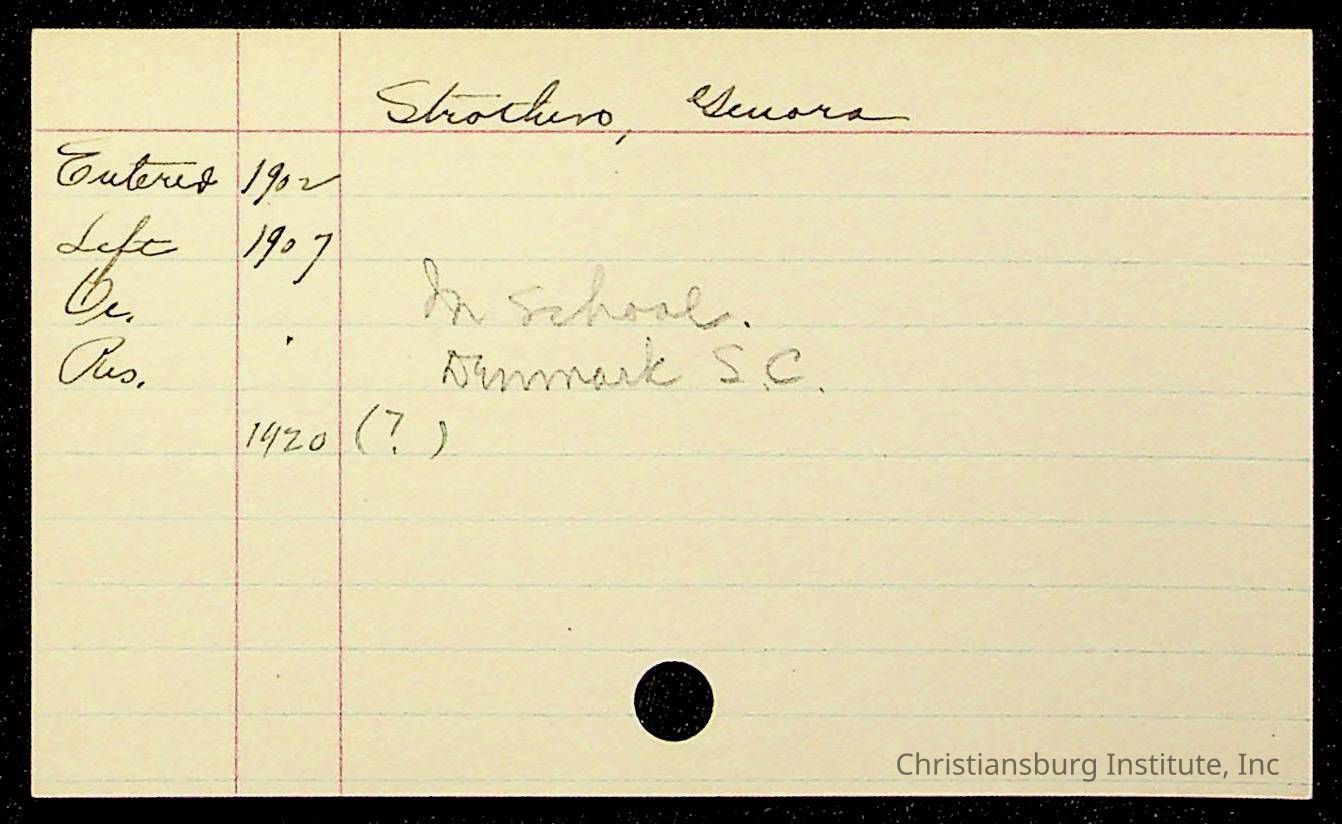 Strothers, Genora
Entered 1902
Left 1907
Oc. In School.
Res. Denmark S.C.
1920 (?)
Christiansburg Institute, Inc